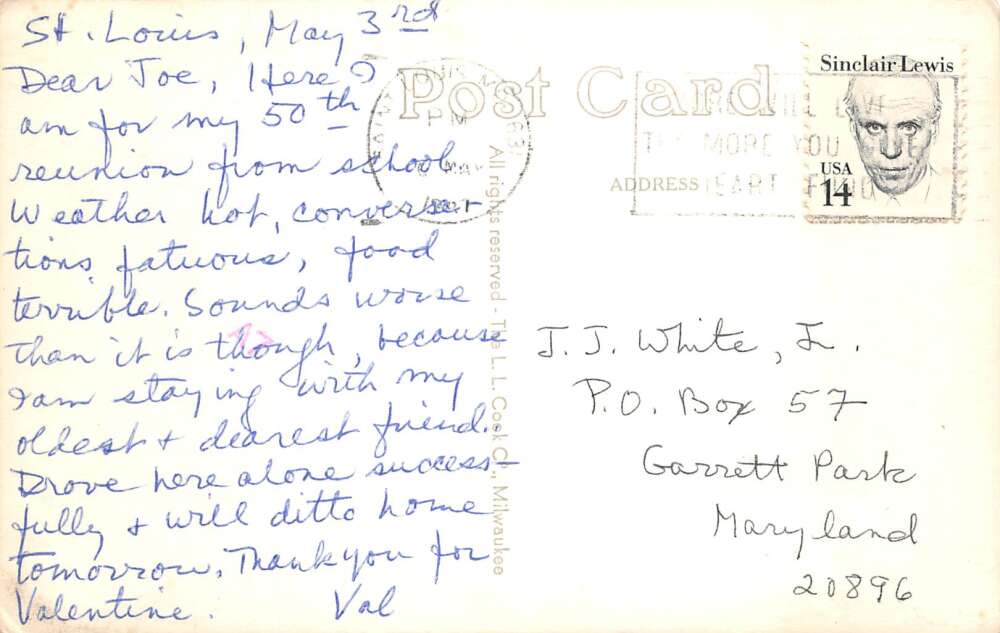 St. Louis, May 3rd
Dear Joe, Here I
am for my 50th
reunion from school.
Weather hot, conversa-
tions fatuous, food
terrible. Sounds worse
than it is though, because
I am staying with my
oldest + dearest friend.
Drove here alone success-
fully + will ditto home
tomorrow. Thank you for
Valentine. Val
Post Card
PM
MAY
ADDRESS
THE MORE YOU
Sinclair Lewis
USA
14
All rights reserved - The L. L. Cook Co., Milwaukee
J. J. White, Jr.
P.O. Box 57
Garrett Park
Maryland
20896